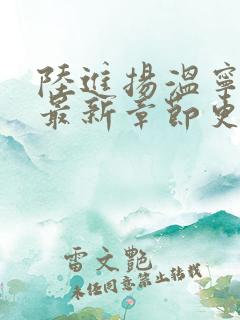 陸進揚溫寧
最新章節更
雷文艷
未经同意禁止转载